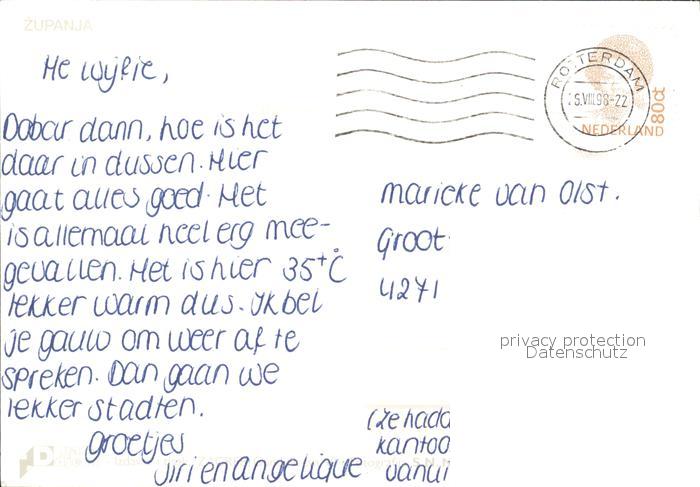 ŽUPANJA
He wijfie,
ROTTERDAM
25.VIII.98-22
NEDERLAND 80ct
Dobar dann, hoe is het
daar in dussen. Hier
gaat alles goed. Het
is allemaal heel erg mee-
gevallen. Het is hier 35+°C
lekker warm dus. Ik bel
je gauw om weer af te
spreken. Dan gaan we
lekker stadten.
groetjes
marieke van Olst.
Groot
4271
privacy protection
Datenschutz
(ze hadd
kantoo
vanui